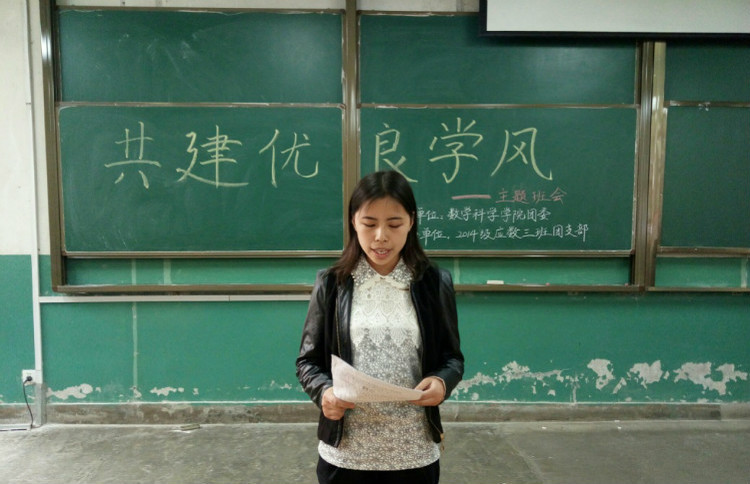 共建优良学风
——主题班会
单位：数学科学学院团委
单位：2014级应数三班团支部